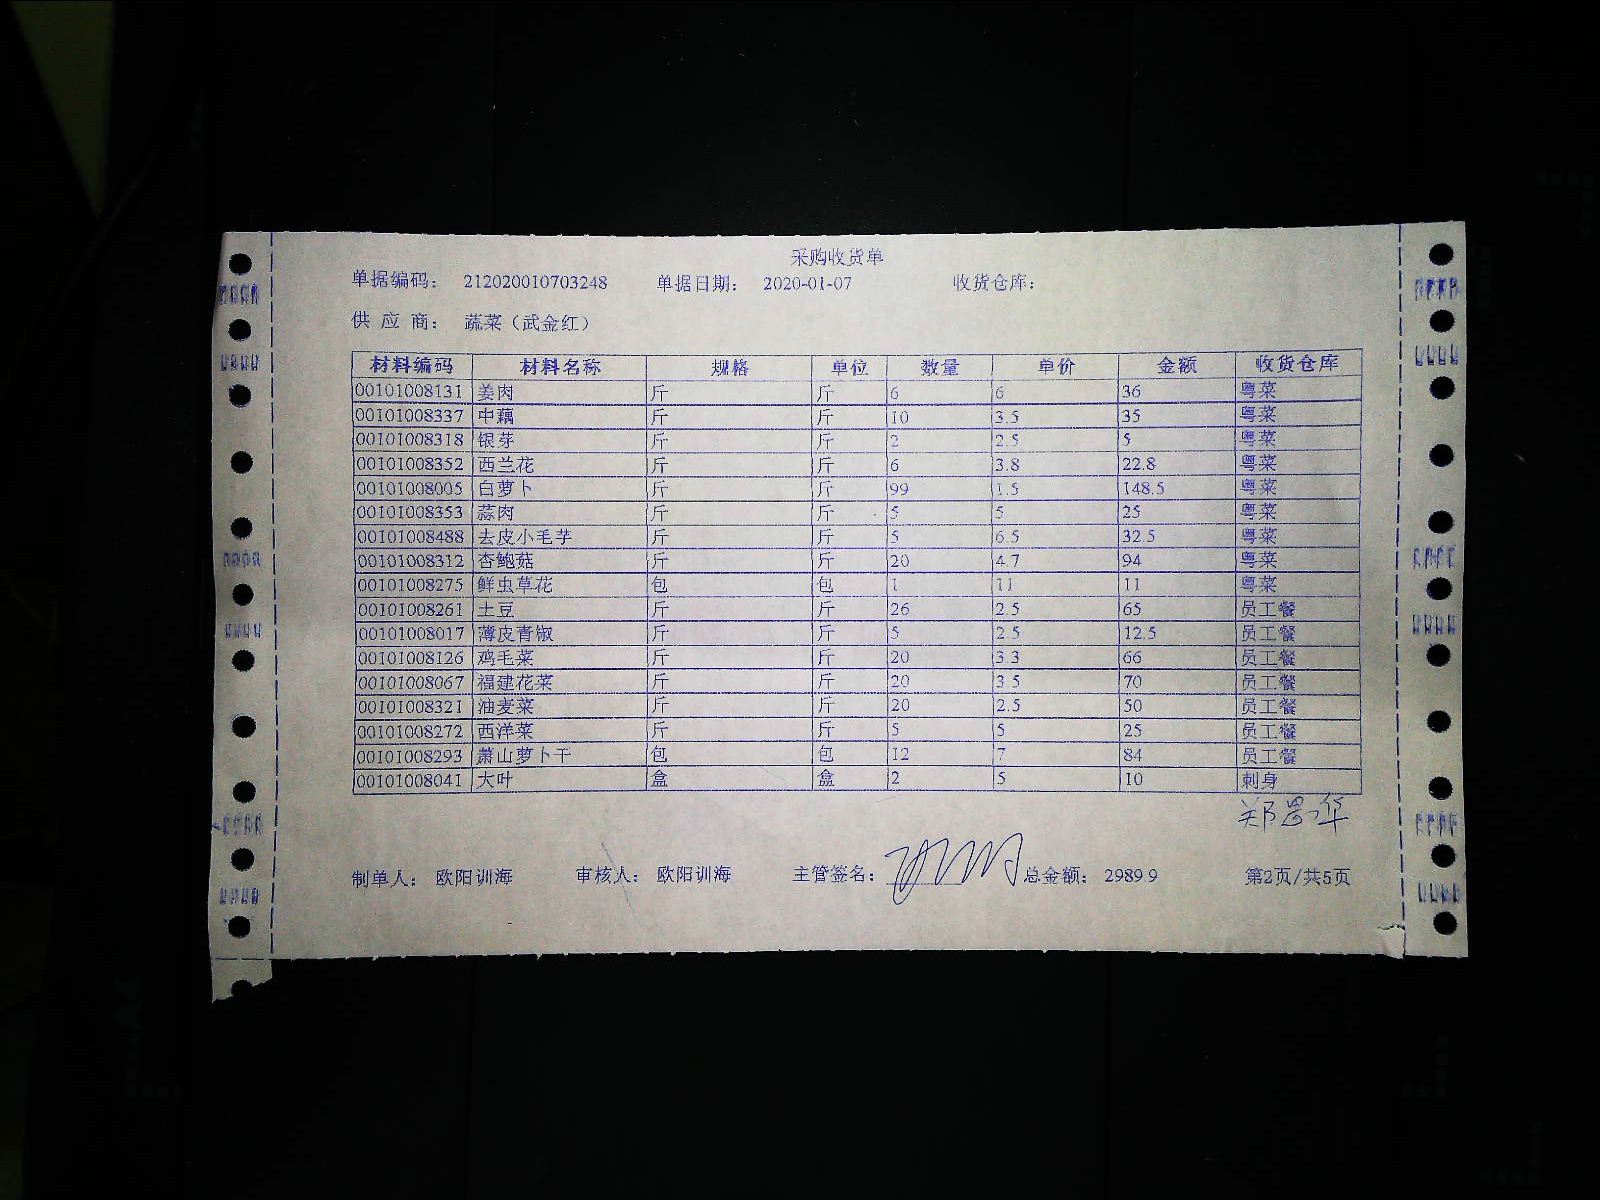 采购收货单
单据编码： 212020010703248 单据日期： 2020-01-07 收货仓库：
供 应 商： 蔬菜（武金红）
材料编码 材料名称 规格 单位 数量 单价 金额 收货仓库
00101008131 姜肉 斤 斤 6 6 36 粤菜
00101008337 中藕 斤 斤 10 3.5 35 粤菜
00101008318 银芽 斤 斤 2 2.5 5 粤菜
00101008352 西兰花 斤 斤 6 3.8 22.8 粤菜
00101008005 白萝卜 斤 斤 99 1.5 148.5 粤菜
00101008353 蒜肉 斤 斤 5 5 25 粤菜
00101008488 去皮小毛芋 斤 斤 5 6.5 32.5 粤菜
00101008312 杏鲍菇 斤 斤 20 4.7 94 粤菜
00101008275 鲜虫草花 包 包 1 11 11 粤菜
00101008261 土豆 斤 斤 26 2.5 65 员工餐
00101008017 薄皮青椒 斤 斤 5 2.5 12.5 员工餐
00101008126 鸡毛菜 斤 斤 20 3.3 66 员工餐
00101008067 福建花菜 斤 斤 20 3.5 70 员工餐
00101008321 油麦菜 斤 斤 20 2.5 50 员工餐
00101008272 西洋菜 斤 斤 5 5 25 员工餐
00101008293 萧山萝卜干 包 包 12 7 84 员工餐
00101008041 大叶 盒 盒 2 5 10 刺身
郑思华
制单人： 欧阳训海 审核人： 欧阳训海 主管签名： 总金额： 2989.9 第2页/共5页